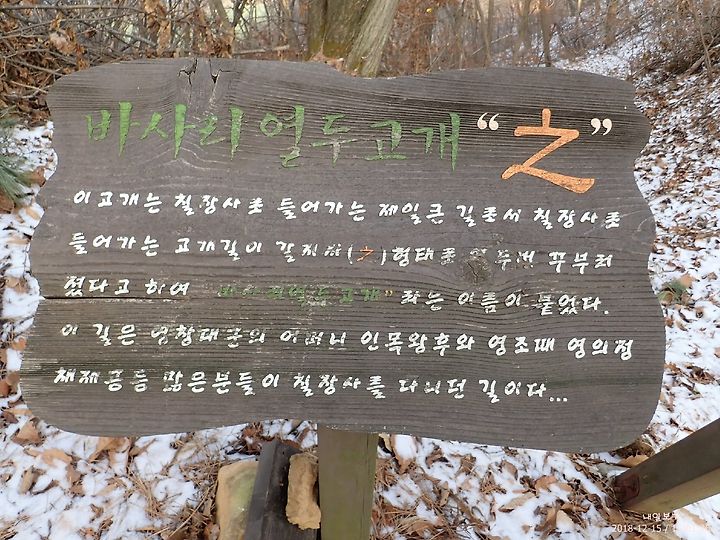 바사리 열두고개 “之”
이 고개는 칠장사로 들어가는 제일큰 길로서 칠장사로
들어가는 고개길이 갈지자(之)형태로 열두번 꾸부러
졌다고 하여 바사리열두고개” 라는 이름이 붙었다.
이 길은 영창대군의 어머니 인목왕후와 영조때 영의정
채제공등 많은분들이 칠장사를 다니던 길이다...
2018-12-15